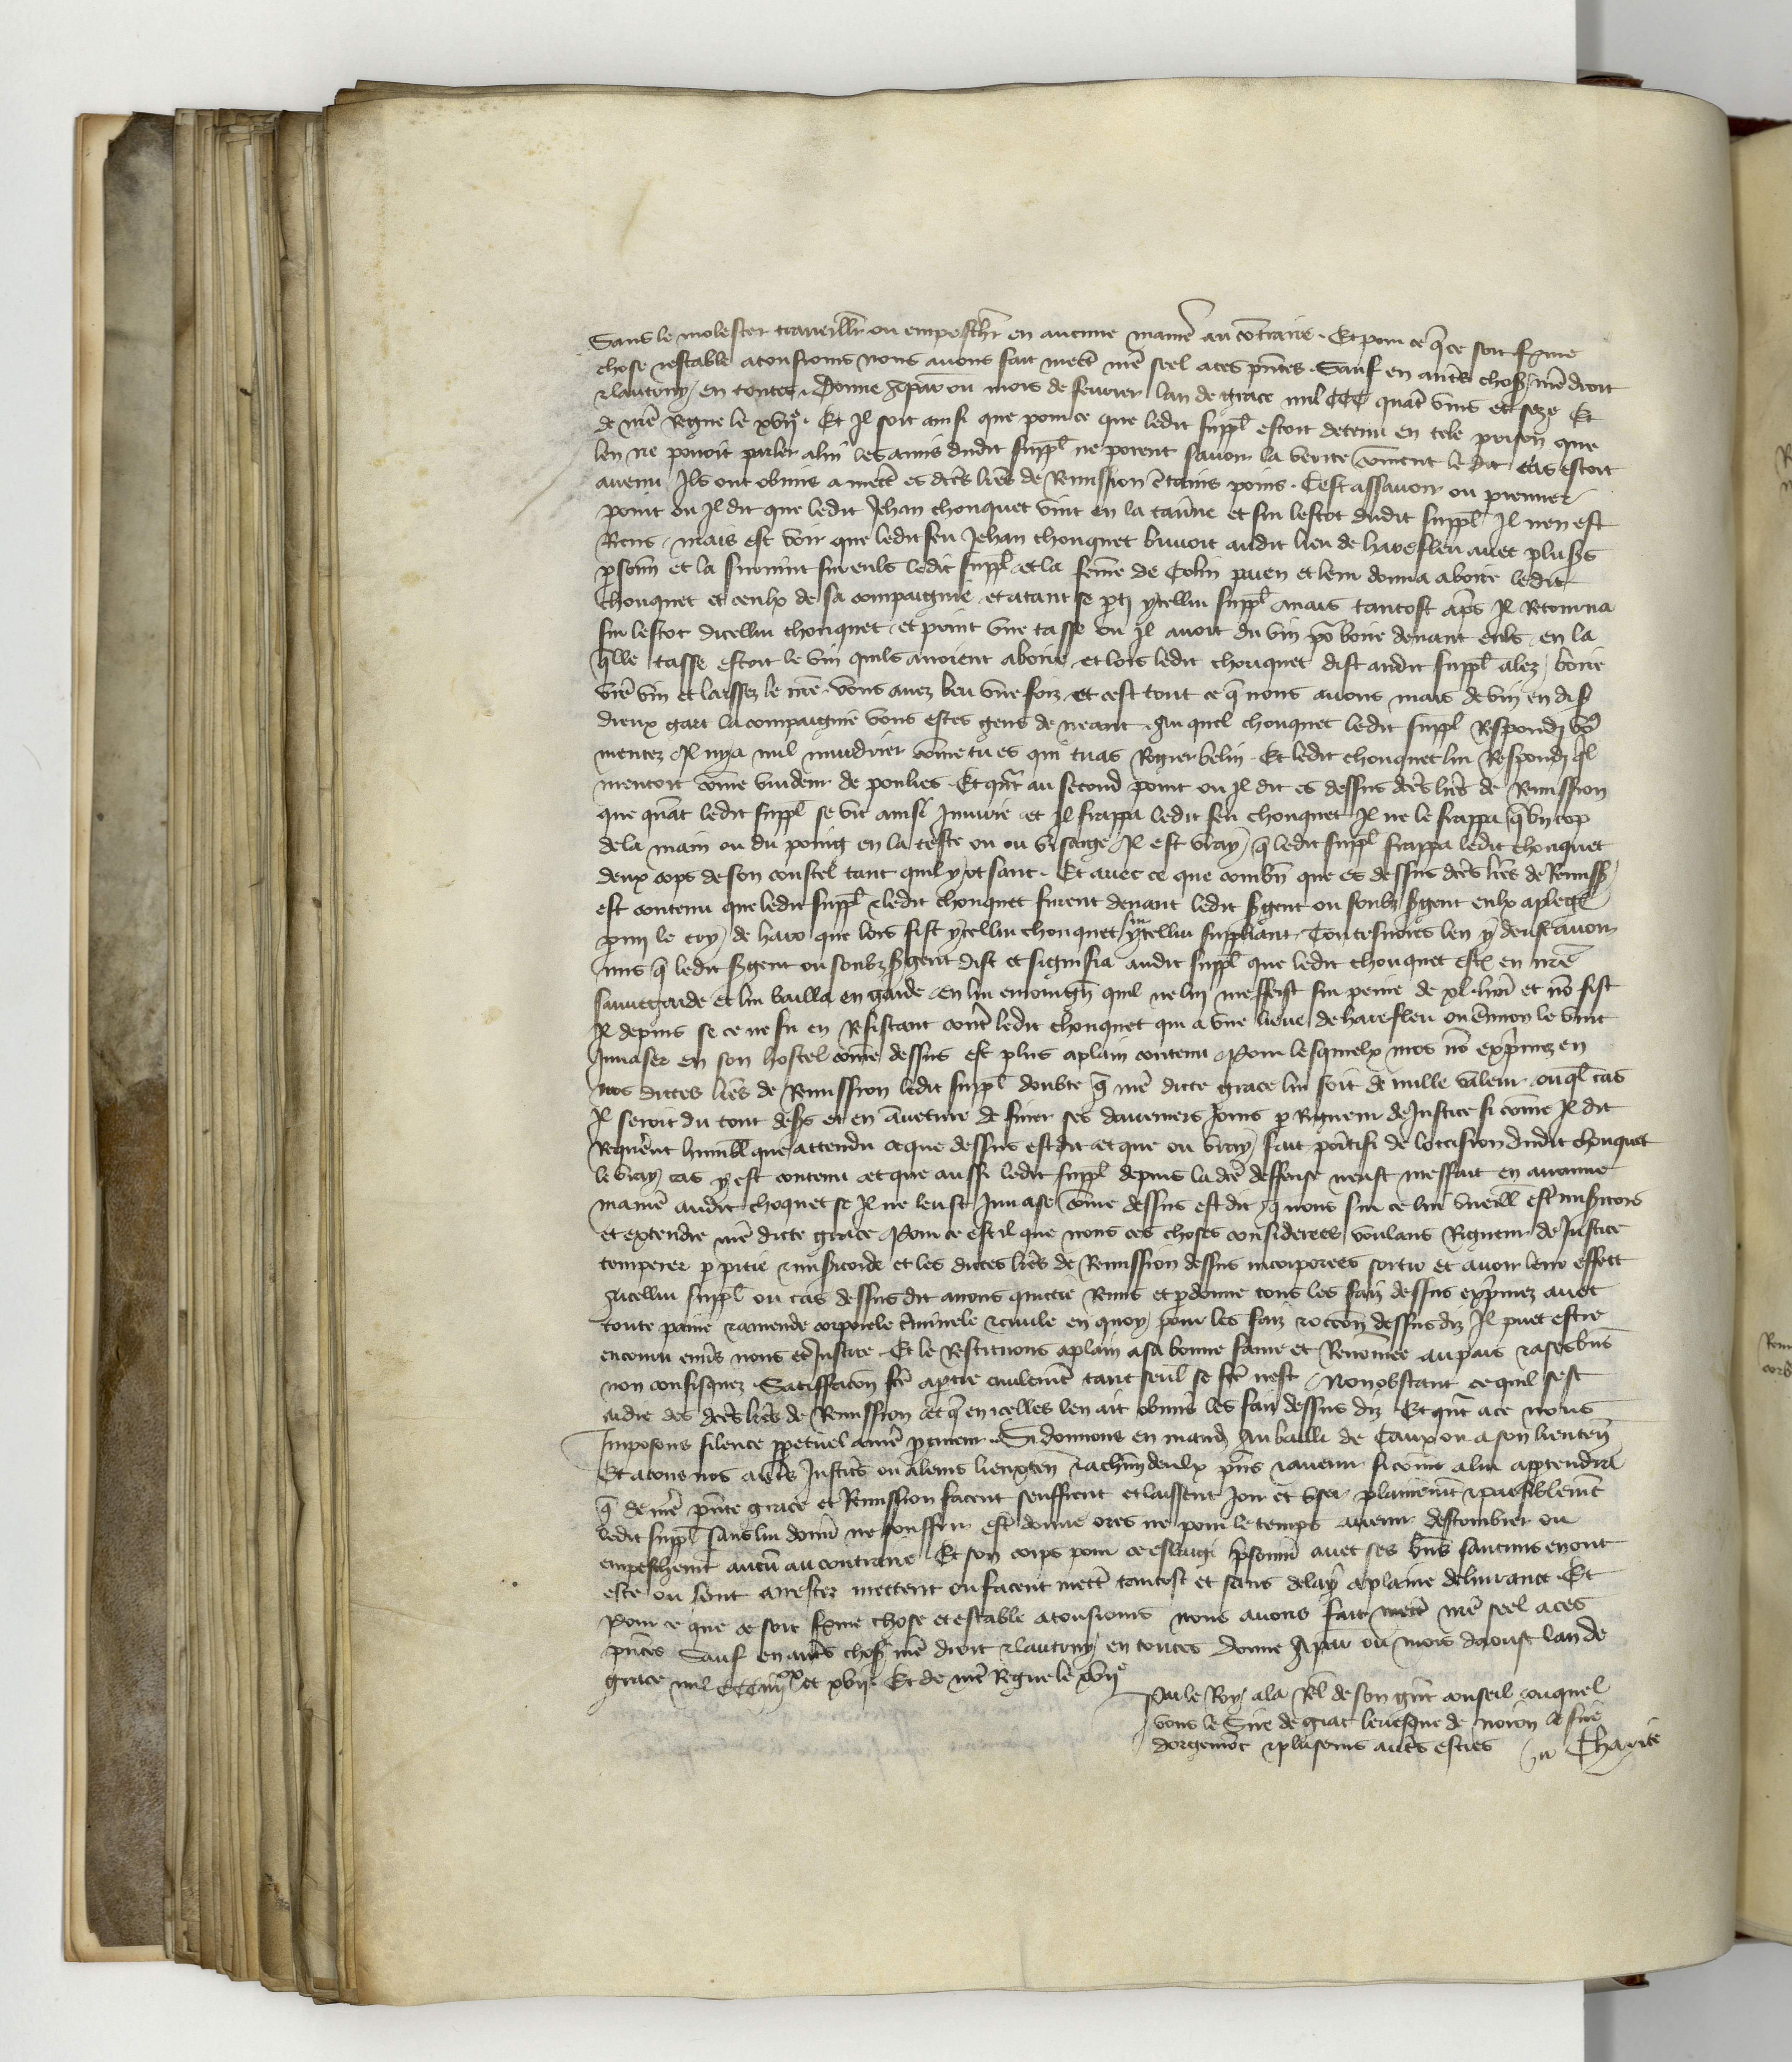 Sans le molester travaillr ou empeschr en aucune maniē au cōtraire. Et pour ce q̄ ce soit ferme
chose ⁊ estable a tousiours nous avons fait mettr nrē seel a ces pn̄tes. Sauf en autrēs choses nrē droit
⁊ lautruy en toutes. Donne a paris ou mois de fevrier lan de grace mil CCC quatr vins et seze Et
de nrē Regne le xvije. Et Il soit ainsi que pour ce que ledit suppl̄ estoit detenu en tele prison que
len ne povoit parler a lui les amis dudit suppl̄ ne porent savoir la verite cōment le dit cas estoit
avenu Ils ont obmis a mettr es dictēs lrēs de Remission c̄tains poins. Cest assavoir ou premier
point ou Il dit que ledit Jehan chouquet vint en la tav̄ne et sur lescot dudit suppl̄ Il nen est
Riens. mais est voir que ledit feu Jehan chouquet buvoit audit lieu de harefleu avec plusrs
p̱sonn̄ et la survint sur eulx ledit suppl̄ et la fem̄e de Colin paen et leur donna a boire ledit
chouquet et ceulx de sa compaignie et atant se p̱ti ycellui suppl̄ mais tantost apr̄s Il Retourna
sur lescot dicellui chouquet. et print une tasse ou il avoit du vin po᷑ boire devant eulx. en la
q̄lle tasse estoit le vin quils avoient a boire et lors ledit chouquet dist audit suppl̄ alez boire
vrē vin et laissez le nrē. vous avez beu une foiz et cest tout ce q̄ nous avons mais de vin en dis
dieux gart la compaignie vous estes gens de neant. Au quel chouquet ledit suppl̄ Respondi vo᷒
mentez Il ny a nul murdrier cōme tu es qui tuas Rogier belin. Et ledit chouquet lui Respondi ql̄
mentoit cōme vuideur de poulies. Et qn̄t au second point ou Il dit es dessus dictēs lrēs de Remission
que quāt ledit suppl̄ se vit ainsi Iniurie et Il frappa ledit feu chouquet Il ne le frappa q̄ un cop
de la main ou du poing en la teste ou ou visaige Il est vray q̄ ledit suppl̄ frappa ledit chouquet
deux cops de son coustel tant quil y ot sanc. Et avec ce que combn̄ que es dessus dictēs lrēs de Remiss
est contenu que ledit suppl̄ ⁊ ledit chouquet furent devant ledit s̄gent ou soubz s̄gent eulx aplegr̄
pour le cry de haro que lors fist ycellui chouquet sur ycellui suppliant. Toutesvoies len y deust avoir
mis q̄ ledit s̄gent ou soubz s̄gent dist et signifia audit suppl̄ que ledit chouquet estr̄ en nrē
sauvegarde et lui bailla en garde en lui enioingn̄ quil ne lui meffeist sur peine de xl. livr̄ et no᷒ fist
Il depuis se ce ne fu en Resistant contr̄ ledit chouquet qui a une lieue de harefleu ou environ le vint
Invaser en son hostel cōme dessus est plus aplain contenu. Pour lesquelx mos no᷒ exp̱mez en
nos dictes lrēs de Remission ledit suppl̄ doubte q̄ nrē dicte grace lui soit de nulle valeur. ouql̄ cas
Il seroit du tout des̄s et en aventure de finer ses darreniers Jours p̱ Rigueur de Justice si cōme Il dit
Requer̄nt humbl̄ que attendu ce que dessus est dit et que ou vray fait p̱ntisi de loccision dudit chouquet
le vray cas y est contenu et que aussi ledit suppl̄ depuis la dicte deffense neust meffait en aucune
maniē audit choquet se Il ne leust Invase cōme dessus est dit q̄ nous sur ce lui vueill̄ estr̄ mis̄icors
et extendre nrē dicte grace. Pour ce est il que nous ces choses considerees voulans Rigueur de Justice
temperer p̱ pitie ⁊ mis̄icorde et les dictes lrēs de Remission dessus incorporees sortir et avoir leur effect
A icellui suppl̄ ou cas dessus dit avons quictie Remis et p̱donne tous les faiz dessus exp̱mez avec
toute paine ⁊ amende corporele c̄minele ⁊ civile en quoy pour les faiz ⁊ occon̄ dessus diz Il puet estre
encouru envs̄ nous et Justice. Et le Restituons aplain a sa bonne fame et Renōmee au pais ⁊ a ses bn̄s
non confisquez. Satiffacon̄ fctē a partie civilemēt tant seul̄ se fctē nest Nonobstant ce quil sest
aidie des dictēs lrēs de Remission et q̄ en icelles len ait obmis les faiz dessus diz Et quāt a ce nous
Imposons silence p̱petuel a nrē p̱cureur. Si donnons en mand̄ Au bailli de Caux ou a son lieuten̄
Et a tous nos autrēs Justicrs ou a leurs lieuxten̄ ⁊ a chūn deulx pn̄s ⁊ avenir si cōme a lui app̱tendra
q̄ de nrē pn̄te grace et Remission facent seuffrent et laissent Joir et user plainemēt ⁊ paisiblemēt
ledit suppl̄ sans lui donnr̄ ne souffrir estr̄ donne ores ne pour le temps avenir destourbier ou
empeschemt̄ aucū au contraire Et son corps pour ce eslargi p̱sonn̄ avec ses bn̄s saucuns en ont
este ou sont arrestez mettent ou facent mettr̄ tantost et sans delay a plaine delivrance. Et
Pour ce que ce soit ferme chose et estable a tousiours nous avons fait mettr̄ nrē seel a ces
pn̄tes Sauf en autrēs choses nrē droit ⁊ lautruy en toutes donne A paris ou mois daoust lan de
grace mil CCC iiijxx et xvij. Et de nrē Regne le xvije
Par le Roy a la Rel̄ de son gr̄nt conseil ouquel
vous le Sire de giac levesque de noion le sire
dorgemōt ⁊ plusieurs autrēs esties Jn Charite